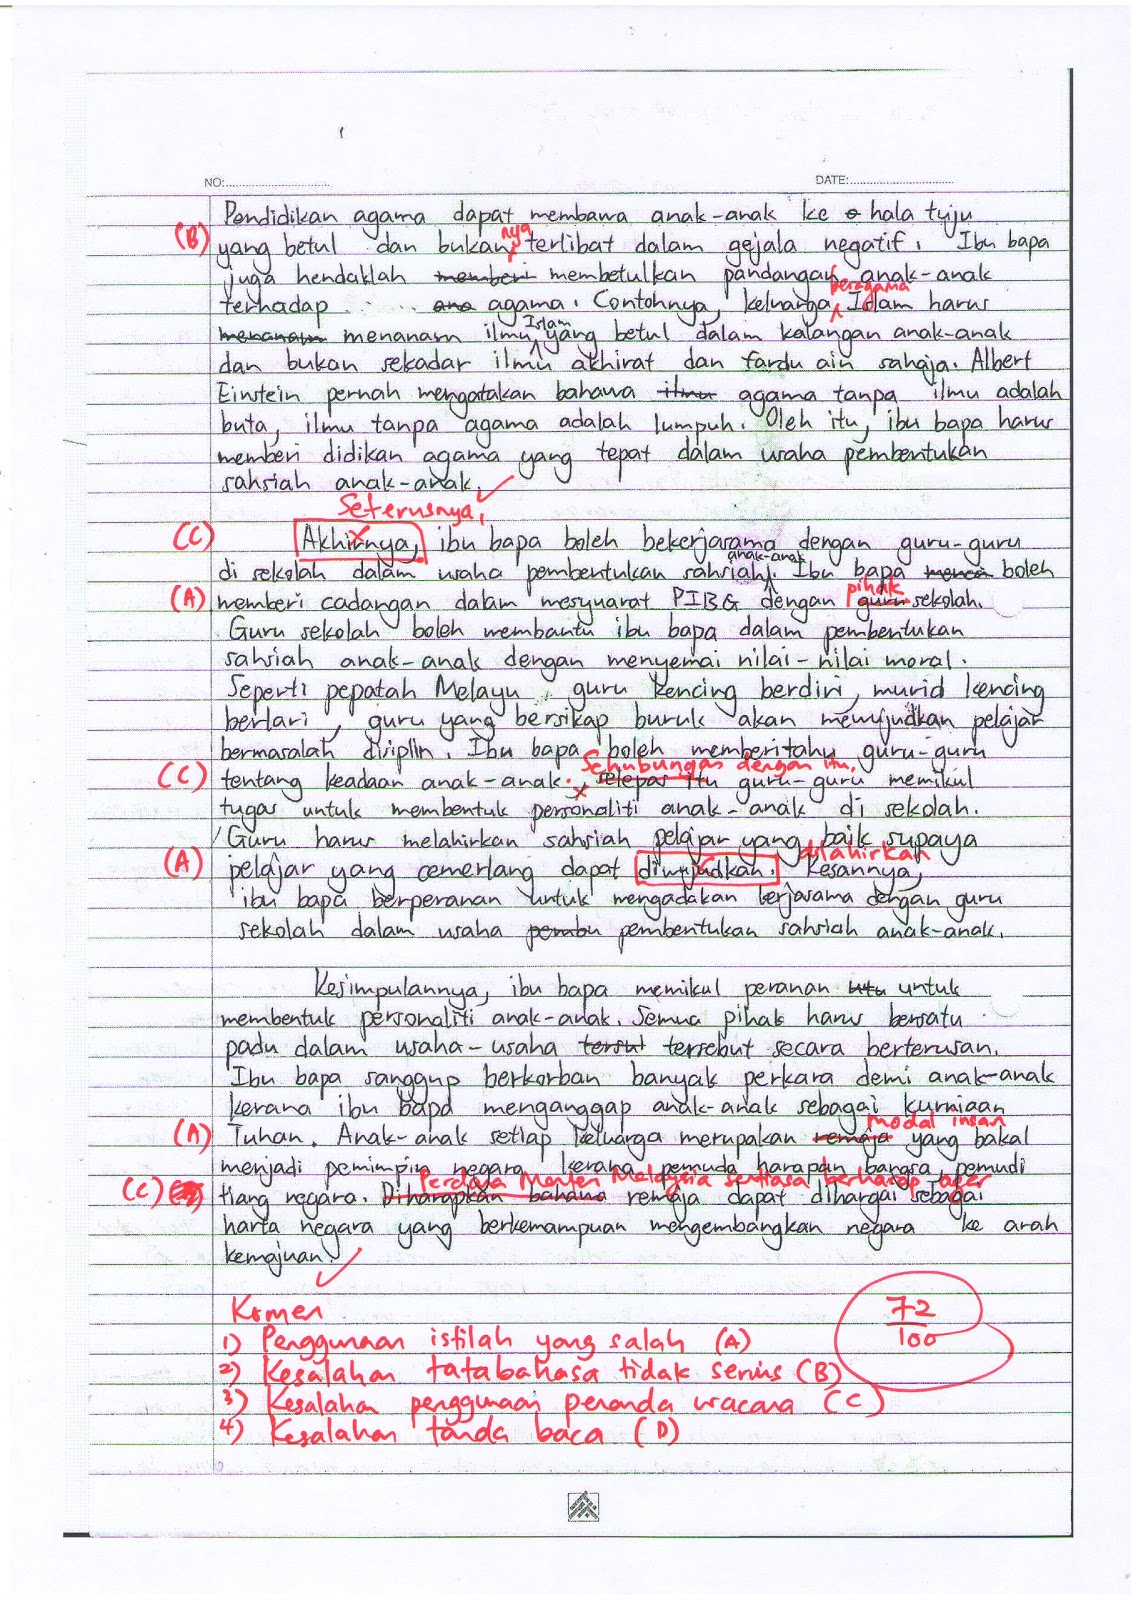 NO:
DATE:
Pendidikan agama dapat membawa anak-anak ke hala tuju
(B) yang betul dan bukan nya terlibat dalam gejala negatif. Ibu bapa
juga hendaklah memberi membetulkan pandangan anak-anak
beragama
terhadap ana agama. Contohnya, keluarga Islam harus
Islam
menanam menanam ilmu yang betul dalam kalangan anak-anak
dan bukan sekadar ilmu akhirat dan fardu ain sahaja. Albert
Einstein pernah mengatakan bahawa ilmu agama tanpa ilmu adalah
buta, ilmu tanpa agama adalah lumpuh. Oleh itu, ibu bapa harus
memberi didikan agama yang tepat dalam usaha pembentukan
sahsiah anak-anak.
Seterusnya,
(C) Akhirnya, ibu bapa boleh bekerjasama dengan guru-guru
anak-anak
di sekolah dalam usaha pembentukan sahsiah. Ibu bapa boleh
pihak
(A) memberi cadangan dalam mesyuarat PIBG dengan guru sekolah.
Guru sekolah boleh membantu ibu bapa dalam pembentukan
sahsiah anak-anak dengan menyemai nilai-nilai moral.
Seperti pepatah Melayu, guru kencing berdiri, murid kencing
berlari, guru yang bersikap buruk akan mewujudkan pelajar
bermasalah disiplin. Ibu bapa boleh memberitahu guru-guru
Sehubungan dengan itu,
(C) tentang keadaan anak-anak. selepas itu guru-guru memikul
tugas untuk membentuk personaliti anak-anak di sekolah.
Guru harus melahirkan sahsiah pelajar yang baik supaya
dilahirkan
(A) pelajar yang cemerlang dapat diwujudkan. Kesannya,
ibu bapa berperanan untuk mengadakan kerjasama dengan guru
sekolah dalam usaha pembentukan sahsiah anak-anak.
Kesimpulannya, ibu bapa memikul peranan untuk
membentuk personaliti anak-anak. Semua pihak harus bersatu
padu dalam usaha-usaha tersebut secara berterusan.
Ibu bapa sanggup berkorban banyak perkara demi anak-anak
kerana ibu bapa menganggap anak-anak sebagai kurniaan
modal insan
(A) Tuhan. Anak-anak setiap keluarga merupakan remaja yang bakal
menjadi pemimpin negara kerana pemuda harapan bangsa, pemudi
Perdana Menteri Malaysia sentiasa berharap agar
(C) tiang negara. Diharapkan bahawa remaja dapat dihargai sebagai
harta negara yang berkemampuan mengembangkan negara ke arah
kemajuan.
Komen
1) Penggunaan istilah yang salah (A)
2) Kesalahan tatabahasa tidak serius (B)
3) Kesalahan penggunaan penanda wacana (C)
4) Kesalahan tanda baca (D)
72
100